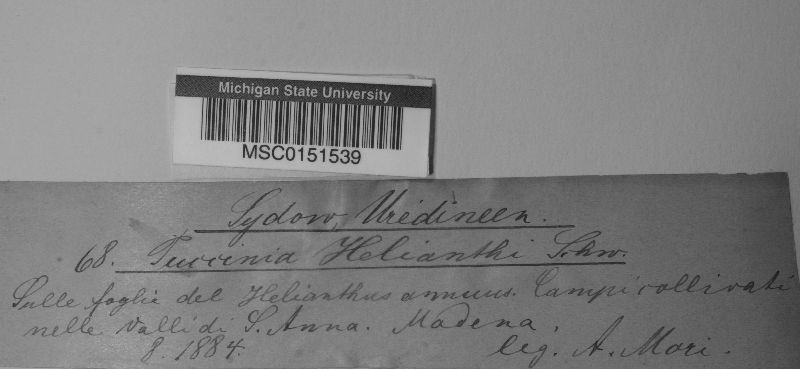 Michigan State University
MSC0151539
Sydow, Uredineen.
68. Puccinia Helianthi Schw.
Sulle foglie del Helianthus annuus. Campi coltivati
nelle valli di S. Anna. Modena.
8. 1884. leg. A. Mori.